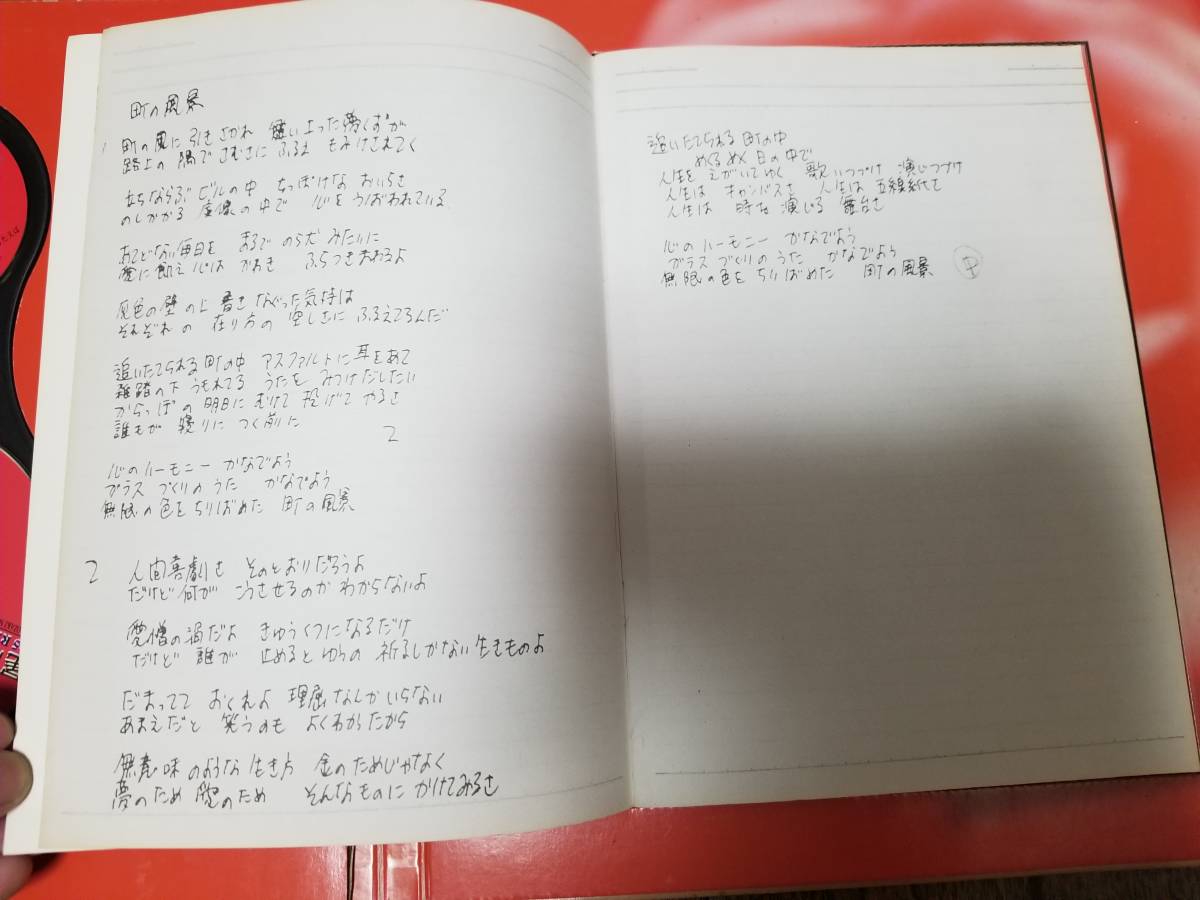 町の風景
町の風に引きさかれ 舞い上った夢くずが
路上の隅で さむさに ふるえ もみけされてく
立ちならぶ ビルの中 ちっぽけな おいらさ
のしかかる 虚像の中で 心を うばわれている
あてどない毎日を まるで のら犬 みたいに
愛に飢え 心は がおき ふらつきまわるよ
灰色の壁の上 書きなぐった気持は
それぞれの 在り方の 空しさに ふるえてるんだ
追いたてられる町の中 アスファルトに耳をあて
雑踏の下 うもれてる うたを みつけだしたい
からっぽの 明日に むけて 投げて やるさ
誰もが 寝りに つく前に
2
心のハーモニー かなでよう
ガラス づくりの うた かなでよう
無限の色を ちりばめた 町の風景
2 人間喜劇さ そのとおりだろうよ
だけど何が こうさせるのか わからないよ
愛憎の渦だよ きゅうくつになるだけ
だけど 誰が 止めるとゆうの 祈るしかない 生きものよ
だまってて おくれよ 理屈なしか いらない
あまえだと 笑うのも よくわかったから
無意味のような 生き方 金のためじゃなく
夢のため 愛のため そんなものに かけてみるさ
追いたてられる 町の中
めくるめく 日の中で
人生を えがいてゆく 歌いつづけ 演じつづけ
人生は キャンバスさ 人生は 五線紙さ
人生は 時を 演じる 舞台さ
心のハーモニー かなでよう
ガラス づくりの うた かなでよう
無限の色を ちりばめた 町の風景